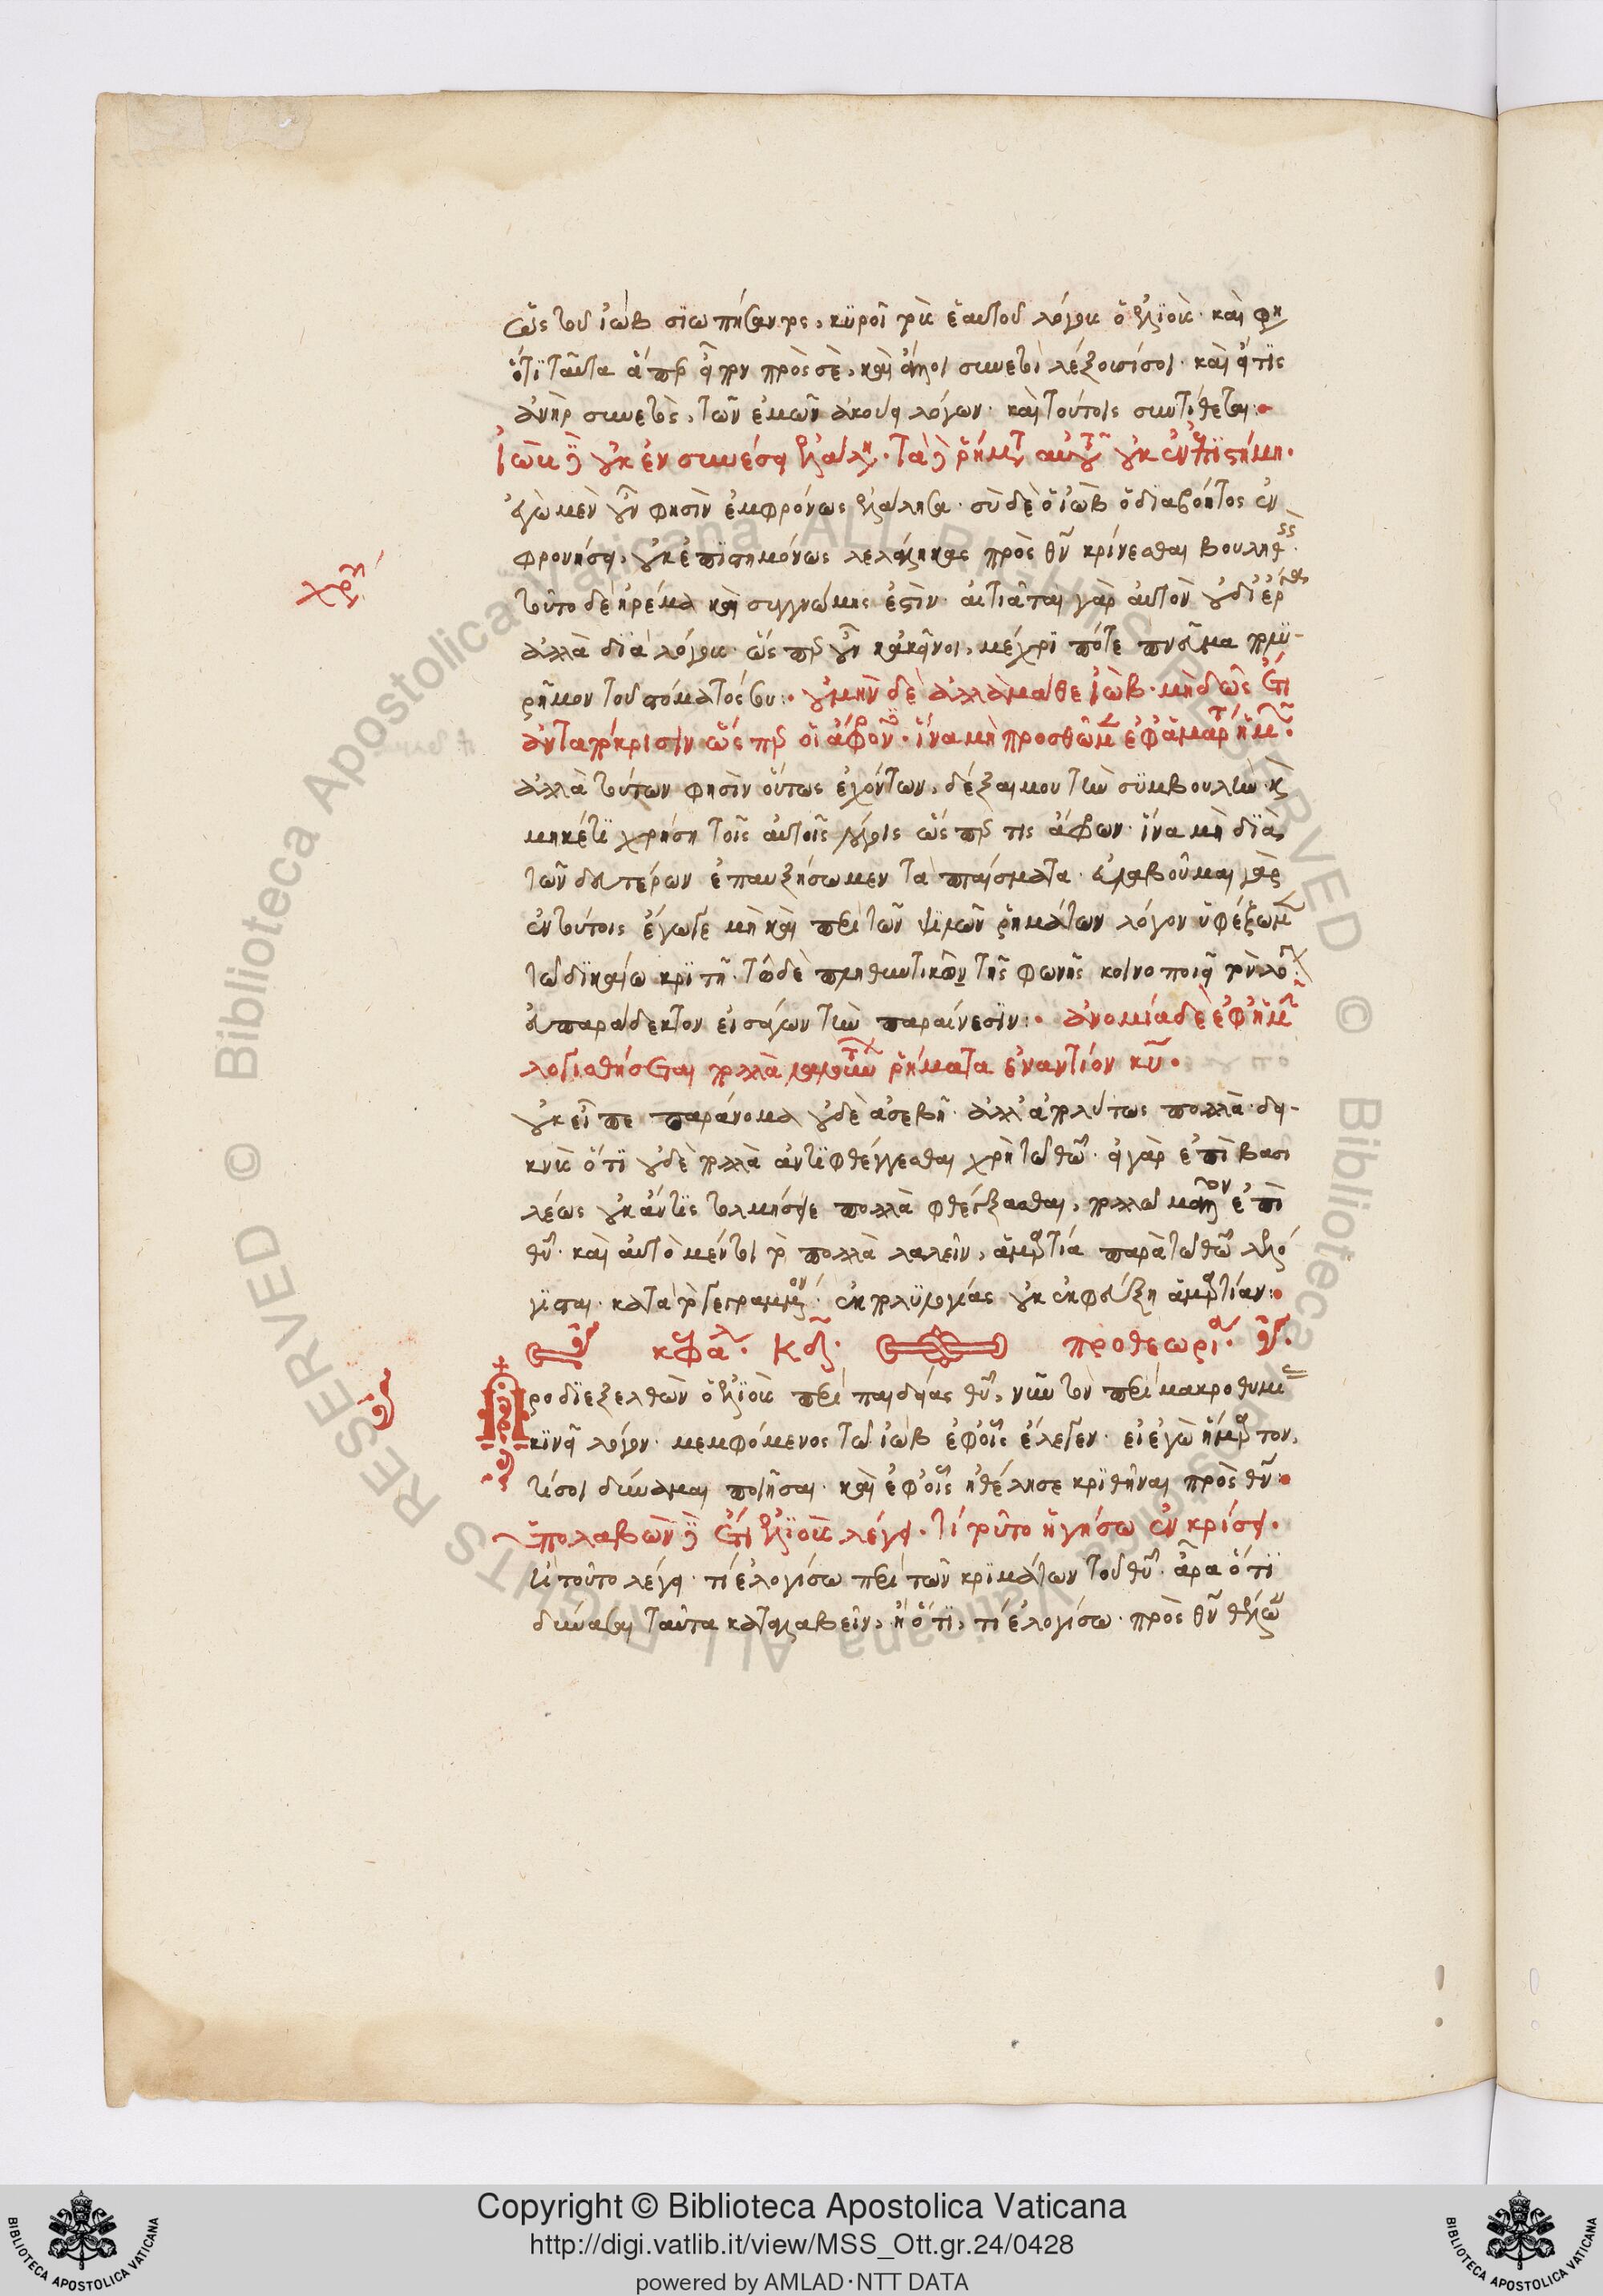 ὅτι ταῦτα ἅπερ εἶπον πρὸς σὲ, καὶ ἄλλοι συνετοὶ λέξουσί σοι· καὶ εἴ τις
ἀνὴρ συνετὸς, τῶν ἐμῶν ἀκούει λόγων· καὶ τούτοις συντίθεται:
Ἰὼβ δὲ οὐκ ἐν συνέσει ἐλάλησε. τὰ δὲ ῥήματα αὐτοῦ οὐκ ἐν ἐπιστήμῃ.
ἐγὼ μὲν οὖν φησὶν ἐμφρόνως ἐλάλησα· σὺ δὲ ὁ ἰὼβ ὁ διαβόητος ἐν
φρονήσει, οὐκ ἐπιστημόνως λελάληκας πρὸς θν κρίνεσθαι βουληθείς·
τοῦτο δὲ ἠρέμα καὶ συγγνώμης ἐστὶν· αἰτιᾶται γὰρ αὐτὸν οὐ δι' ἔργα
ἀλλὰ διὰ λόγους· ὥσπερ οὖν κἀκεῖνοι, μέχρι πότε πνεῦμα πολυ-
ρῆμον τοῦ στόματός σου: οὐ μὴν δὲ ἀλλὰ μάθε Ἰὼβ. μὴ δῷς ἔτι
ἀνταπόκρισιν ὥσπερ οἱ ἄφρονες. ἵνα μὴ προσθῶμεν ἐφ' ἁμαρτίαις ἡμῶν.
ἀλλὰ τούτων φησὶν οὕτως ἐχόντων, δέξαι μου τὴν συμβουλὴν καὶ
μηκέτι χρήσῃ τοῖς αὐτοῖς λόγοις ὥσπερ τις ἄφρων· ἵνα μὴ διὰ
τῶν δευτέρων ἐπαυξήσωμεν τὰ πταίσματα· εὐλαβοῦμαι γὰρ
ἐν τούτοις ἔγωγε μὴ καὶ περὶ τῶν ἡμῶν ῥημάτων λόγον ὑφέξωμεν
τῷ δικαίῳ κριτῇ· τῷ δὲ πληθυντικῷ τῆς φωνῆς κοινοποιεῖ τὸν λόγον
εὐπαράδεκτον εἰσάγων τὴν παραίνεσιν: ἀνομία δὲ ἐφ' ἡμῖν
λογισθήσεται πολλὰ λαλούντων ῥήματα ἐναντίον κυ.
οὐκ εἶπε παράνομα οὐδὲ ἀσεβῆ· ἀλλ' ἁπλούστως πολλὰ· δει-
κνὺς ὅτι οὐδὲ πολλὰ ἀντιφθέγγεσθαι χρὴ τῷ θῶ· εἰ γὰρ ἐπὶ βασι
λέως οὐκ ἄν τις τολμήσειε πολλὰ φθέγξασθαι, πολλῷ μᾶλλον ἐπὶ
θυ· καὶ αὐτὸ μέντοι τὸ πολλὰ λαλεῖν, ἁμαρτία παρὰ τῷ θῶ λελό
γισται· κατὰ τὸ γεγραμμένον· ἐκ πολυλογίας οὐκ ἐκφεύξῃ ἁμαρτίαν:
προθεωρία
ροδιεξελθὼν ὁ ἐλιοὺς περὶ παιδείας θυ, νῦν τὸν περὶ μακροθυμίας
κινεῖ λόγον· μεμφόμενος τῷ ἰὼβ ἐφ' οἷς ἔλεγεν· εἰ ἐγὼ ἥμαρτον,
τί σοι δύναμαι ποιῆσαι· καὶ ἐφ' οἷς ἠθέλησε κριθῆναι πρὸς θν:
Ὑπολαβὼν δὲ ἔτι ἐλιοὺς λέγει. τί τοῦτο ἡγήσω ἐν κρίσει.
τί τοῦτο λέγει· τί ἐλογίσω περὶ τῶν κριμάτων τοῦ θυ· ἆρα ὅτι
δύνασαι ταῦτα καταλαβεῖν, ἢ ὅτι, τί ἐλογίσω· πρὸς θν
Copyright © Biblioteca Apostolica Vaticana
http://digi.vatlib.it/view/MSS_Ott.gr.24/0428
powered by AMLAD·NTT DATA